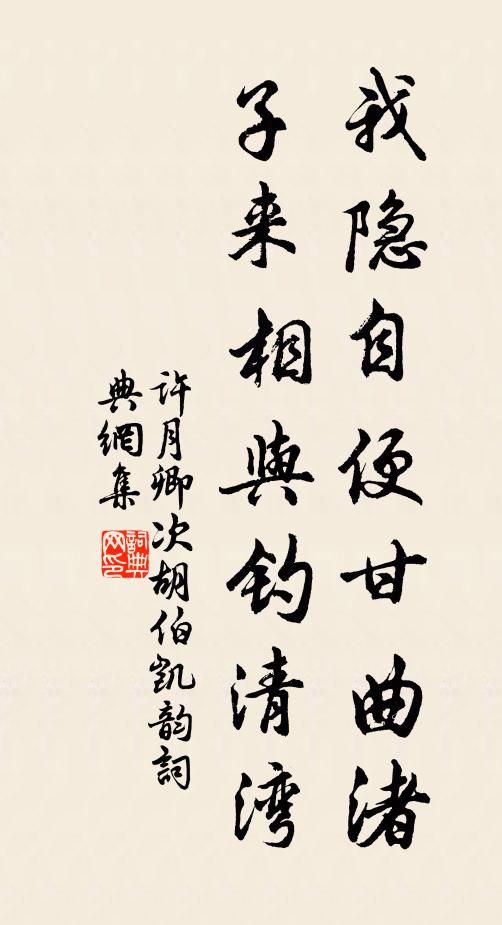 我隐自便甘曲渚
子来相與钓清湾
許月卿次胡伯凯韵詞
典網集
詞典
网印